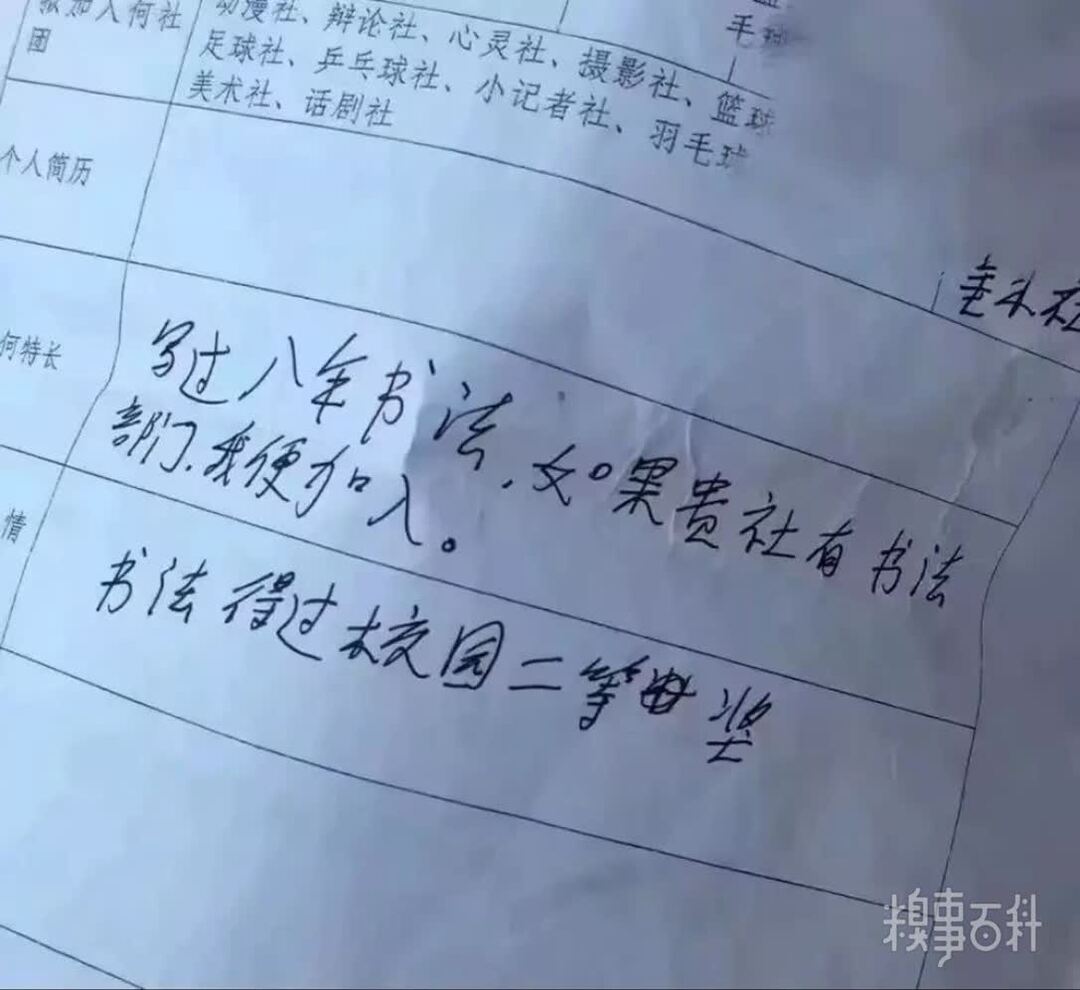 拟加入何社团
动漫社、辩论社、心灵社、摄影社、篮球
足球社、乒乓球社、小记者社、羽毛球
美术社、话剧社
毛球
个人简历
何特长
写过八年书法，如果贵社有书法
部门，我便加入。
情
书法得过校园二等奖
糗事百科